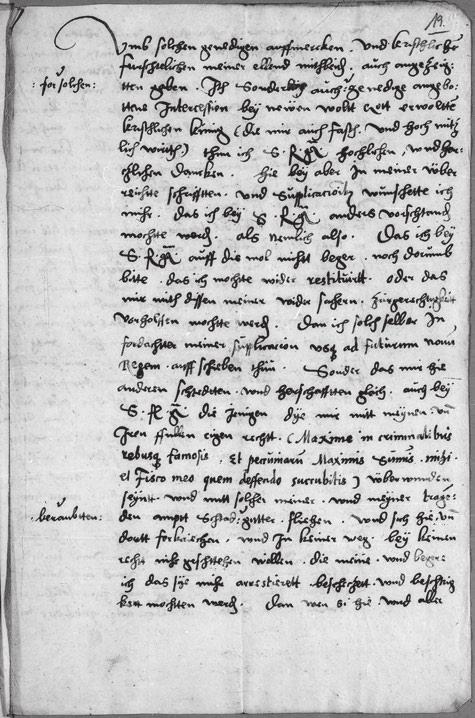 19.
Vmb solchen genedigen auffmercken. Vnd kerschliche
furschtlichen meiner ellend mithleid. auch angezeig-
: for solchen :
tten geben. Ich Sonderlich auch genedige angebo-
ttene Intercession bey newen wolt Gott erwoltte
kerschlichen king (die mir auch fasth. Vnd hoch nutz
lich würth) thun ich S. R. M. hochlichen, vnd her-
chlichen dancken. hie bey aber In meiner vber
reichte schrifften. Vnd Supplicacion wünschette ich
nihr. das ich bey S. R. M. anders vorschtand
mochte werd. als nemlich also. Das ich bey
S. R. M. auff die mol nicht beger. noch dorumb
bitte. das ich mochte wider restituirdt. oder das
mir mith dissen meiner wider sachern.
Vorholffen mochte werd. Dan ich solch selber In
fordachtter meiner supplicacion vsq ad futurum nouu
Regem. auff schieben thun. Sonder das mir hie
anderen schtedtten. Vnd herschafftten gleich. auch bey
S. R. M. die Jenigen dye mir mitt meynen vn
Iren ffullen eigen rechtt. (Maxime in criminalibus
rebusq famosis. Et pecuniaru Maximis Sumis. mihi.
et Fisco meo quem deffendo succubitis) vberwunden
seyntt. Vnd mitt solcher meiner. Vnd meyner trage-
: beraubtten :
den amptt Schad: gutter. fliehen. Vnd sich hie. vn
dortt forkriechen. Vnd In keiner weg. bey keinen
recht nihr geschttehen wollen. die meine. Vnd begere
ich das sye nihr arrestierett. beschehett. Vnd beschtig
kett mochtten werd. Dan wen si hie Vnd aller